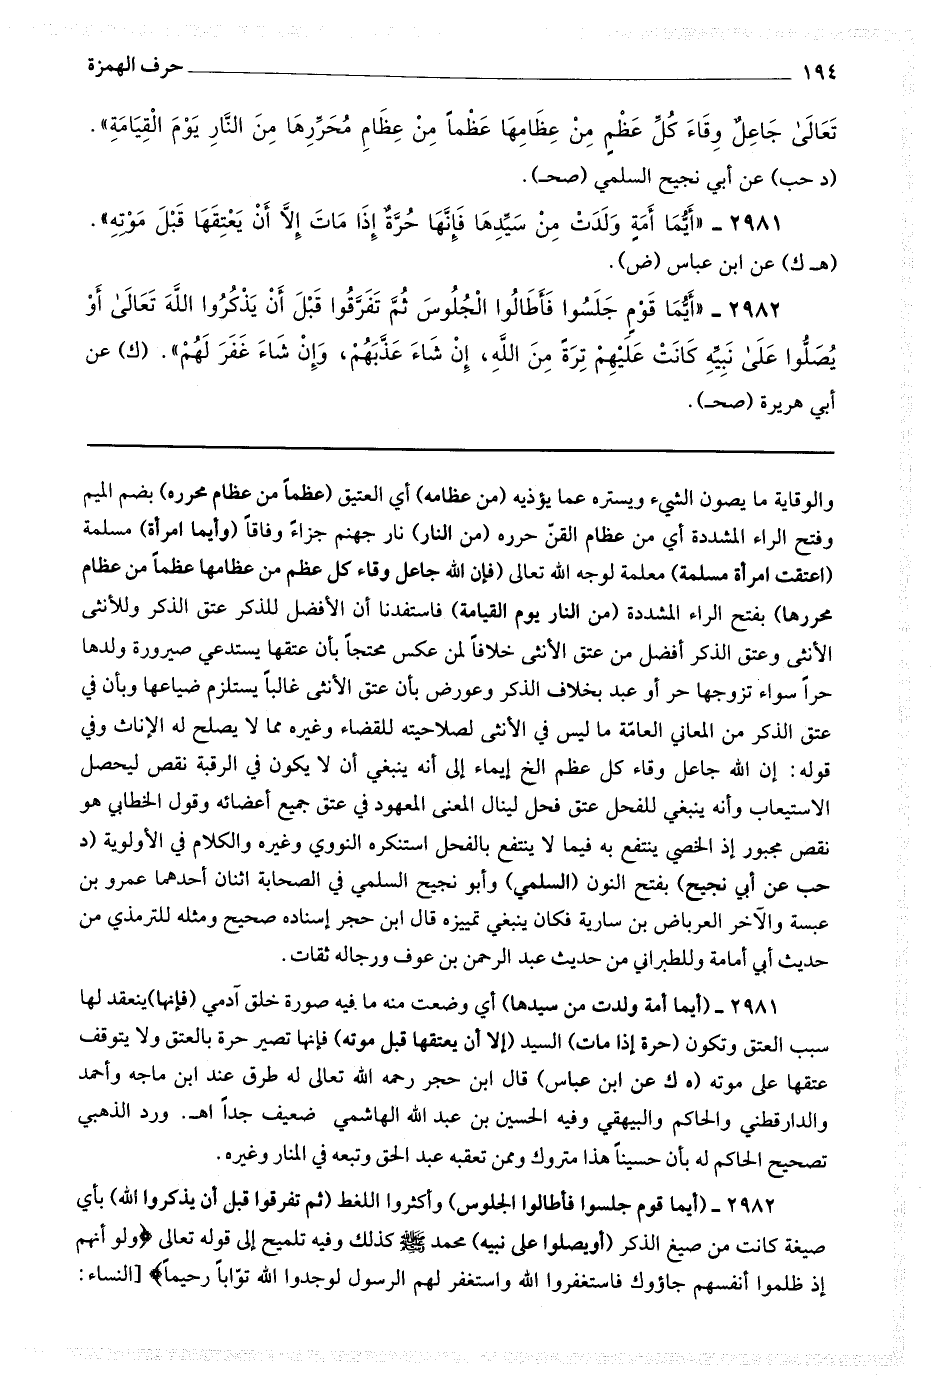 ١٩٤ حرف الهمزة
تَعَالَىٰ جَاعِلٌ وِقَاءَ كُلِّ عَظْمٍ مِنْ عِظَامِهَا عَظْماً مِنْ عِظَامِ مُحَرِّرِهَا مِنَ النَّارِ يَوْمَ الْقِيَامَةِ».
(د حب) عن أبي نجيح السلمي (صحـ).
٢٩٨١ ـ «أَيُّمَا أَمَةٍ وَلَدَتْ مِنْ سَيِّدِهَا فَإِنَّهَا حُرَّةٌ إِذَا مَاتَ إِلاَّ أَنْ يَعْتِقَهَا قَبْلَ مَوْتِهِ».
(هـ ك) عن ابن عباس (ض).
٢٩٨٢ ـ «أَيُّمَا قَوْمٍ جَلَسُوا فَأَطَالُوا الْجُلُوسَ ثُمَّ تَفَرَّقُوا قَبْلَ أَنْ يَذْكُرُوا اللَّهَ تَعَالَىٰ أَوْ
يُصَلُّوا عَلَىٰ نَبِيِّهِ كَانَتْ عَلَيْهِمْ تِرَةً مِنَ اللَّهِ، إِنْ شَاءَ عَذَّبَهُمْ، وَإِنْ شَاءَ غَفَرَ لَهُمْ». (ك) عن
أبي هريرة (صحـ).
والوقاية ما يصون الشيء ويستره عما يؤذيه (من عظامه) أي العتيق (عظماً من عظام محرره) بضم الميم
وفتح الراء المشددة أي من عظام القنّ حرره (من النار) نار جهنم جزاءً وفاقاً (وأيما امرأة) مسلمة
(اعتقت امرأة مسلمة) معلمة لوجه الله تعالى (فإن الله جاعل وقاء كل عظم من عظامها عظماً من عظام
محررها) بفتح الراء المشددة (من النار يوم القيامة) فاستفدنا أن الأفضل للذكر عتق الذكر وللأنثى
الأنثى وعتق الذكر أفضل من عتق الأنثى خلافاً لمن عكس محتجاً بأن عتقها يستدعي صيرورة ولدها
حراً سواء تزوجها حر أو عبد بخلاف الذكر وعورض بأن عتق الأنثى غالباً يستلزم ضياعها وبأن في
عتق الذكر من المعاني العامّة ما ليس في الأنثى لصلاحيته للقضاء وغيره مما لا يصلح له الإناث وفي
قوله: إن الله جاعل وقاء كل عظم الخ إيماء إلى أنه ينبغي أن لا يكون في الرقبة نقص ليحصل
الاستيعاب وأنه ينبغي للفحل عتق فحل لينال المعنى المعهود في عتق جميع أعضائه وقول الخطابي هو
نقص مجبور إذ الخصي ينتفع به فيما لا ينتفع بالفحل استنكره النووي وغيره والكلام في الأولوية (د
حب عن أبي نجيح) بفتح النون (السلمي) وأبو نجيح السلمي في الصحابة اثنان أحدهما عمرو بن
عبسة والآخر العرباض بن سارية فكان ينبغي تمييزه قال ابن حجر إسناده صحيح ومثله للترمذي من
حديث أبي أمامة وللطبراني من حديث عبد الرحمن بن عوف ورجاله ثقات.
٢٩٨١ ـ (أيما أمة ولدت من سيدها) أي وضعت منه ما فيه صورة خلق آدمي (فإنها)ينعقد لها
سبب العتق وتكون (حرة إذا مات) السيد (إلا أن يعتقها قبل موته) فإنها تصير حرة بالعتق ولا يتوقف
عتقها على موته (ه ك عن ابن عباس) قال ابن حجر رحمه الله تعالى له طرق عند ابن ماجه وأحمد
والدارقطني والحاكم والبيهقي وفيه الحسين بن عبد الله الهاشمي ضعيف جداً اهـ. ورد الذهبي
تصحيح الحاكم له بأن حسيناً هذا متروك وممن تعقبه عبد الحق وتبعه في المنار وغيره.
٢٩٨٢ ـ (أيما قوم جلسوا فأطالوا الجلوس) وأكثروا اللغط (ثم تفرقوا قبل أن يذكروا الله) بأي
صيغة كانت من صيغ الذكر (أويصلوا على نبيه) محمد ﷺ كذلك وفيه تلميح إلى قوله تعالى ﴿ولو أنهم
إذ ظلموا أنفسهم جاؤوك فاستغفروا الله واستغفر لهم الرسول لوجدوا الله توّاباً رحيماً﴾ [النساء: